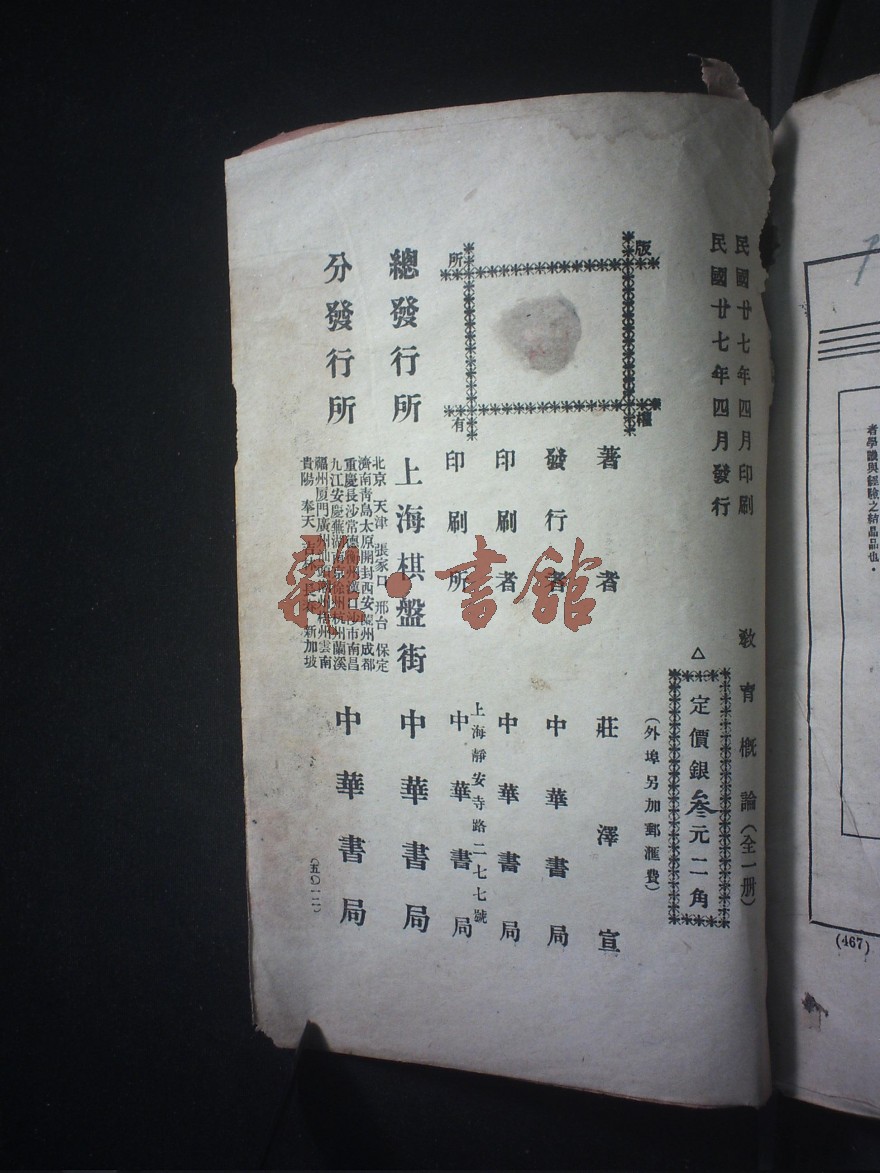 民國廿七年四月印刷
民國廿七年四月發行
教育概論（全一册）
△定價銀叁元二角
（外埠另加郵滙費）
版權所有
著者 莊澤宣
發行者 中華書局
印刷者 中華書局
上海靜安寺路二七七號
印刷所 中華書局
總發行所 上海棋盤街 中華書局
分發行所 中華書局
北京 天津 張家口 邢台 保定
濟南青島太原開封西安蘭州成都
重慶長沙常德衡州漢口沙市南昌
九江安慶蕪湖南京徐州杭州蘭溪
福州厦門廣州汕頭潮州梧州雲南
貴陽 奉天 吉林 長春 新加坡
（五〇一二）
者學識與經驗之結晶品也．
(467)
書館